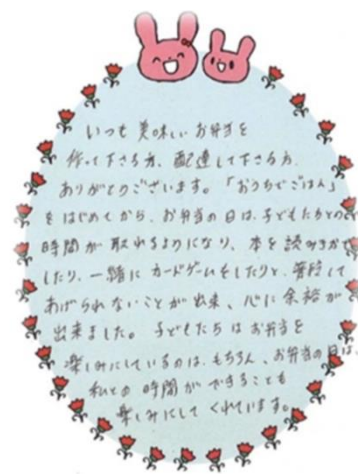 いつも 美味しい お弁当を
作って下さる方、配達して下さる方、
ありがとうございます。「おうちでごはん」
をはじめてから、お弁当の日は、子どもたちとの
時間が取れるようになり、本を読みきかせ
したり、一緒にカードゲームをしたりと、普段して
あげられないことが出来、心に余裕が
出来ました。子どもたちはお弁当を
楽しみにしているのは、もちろん、お弁当の日は、
私との時間ができることも
楽しみにしてくれています。